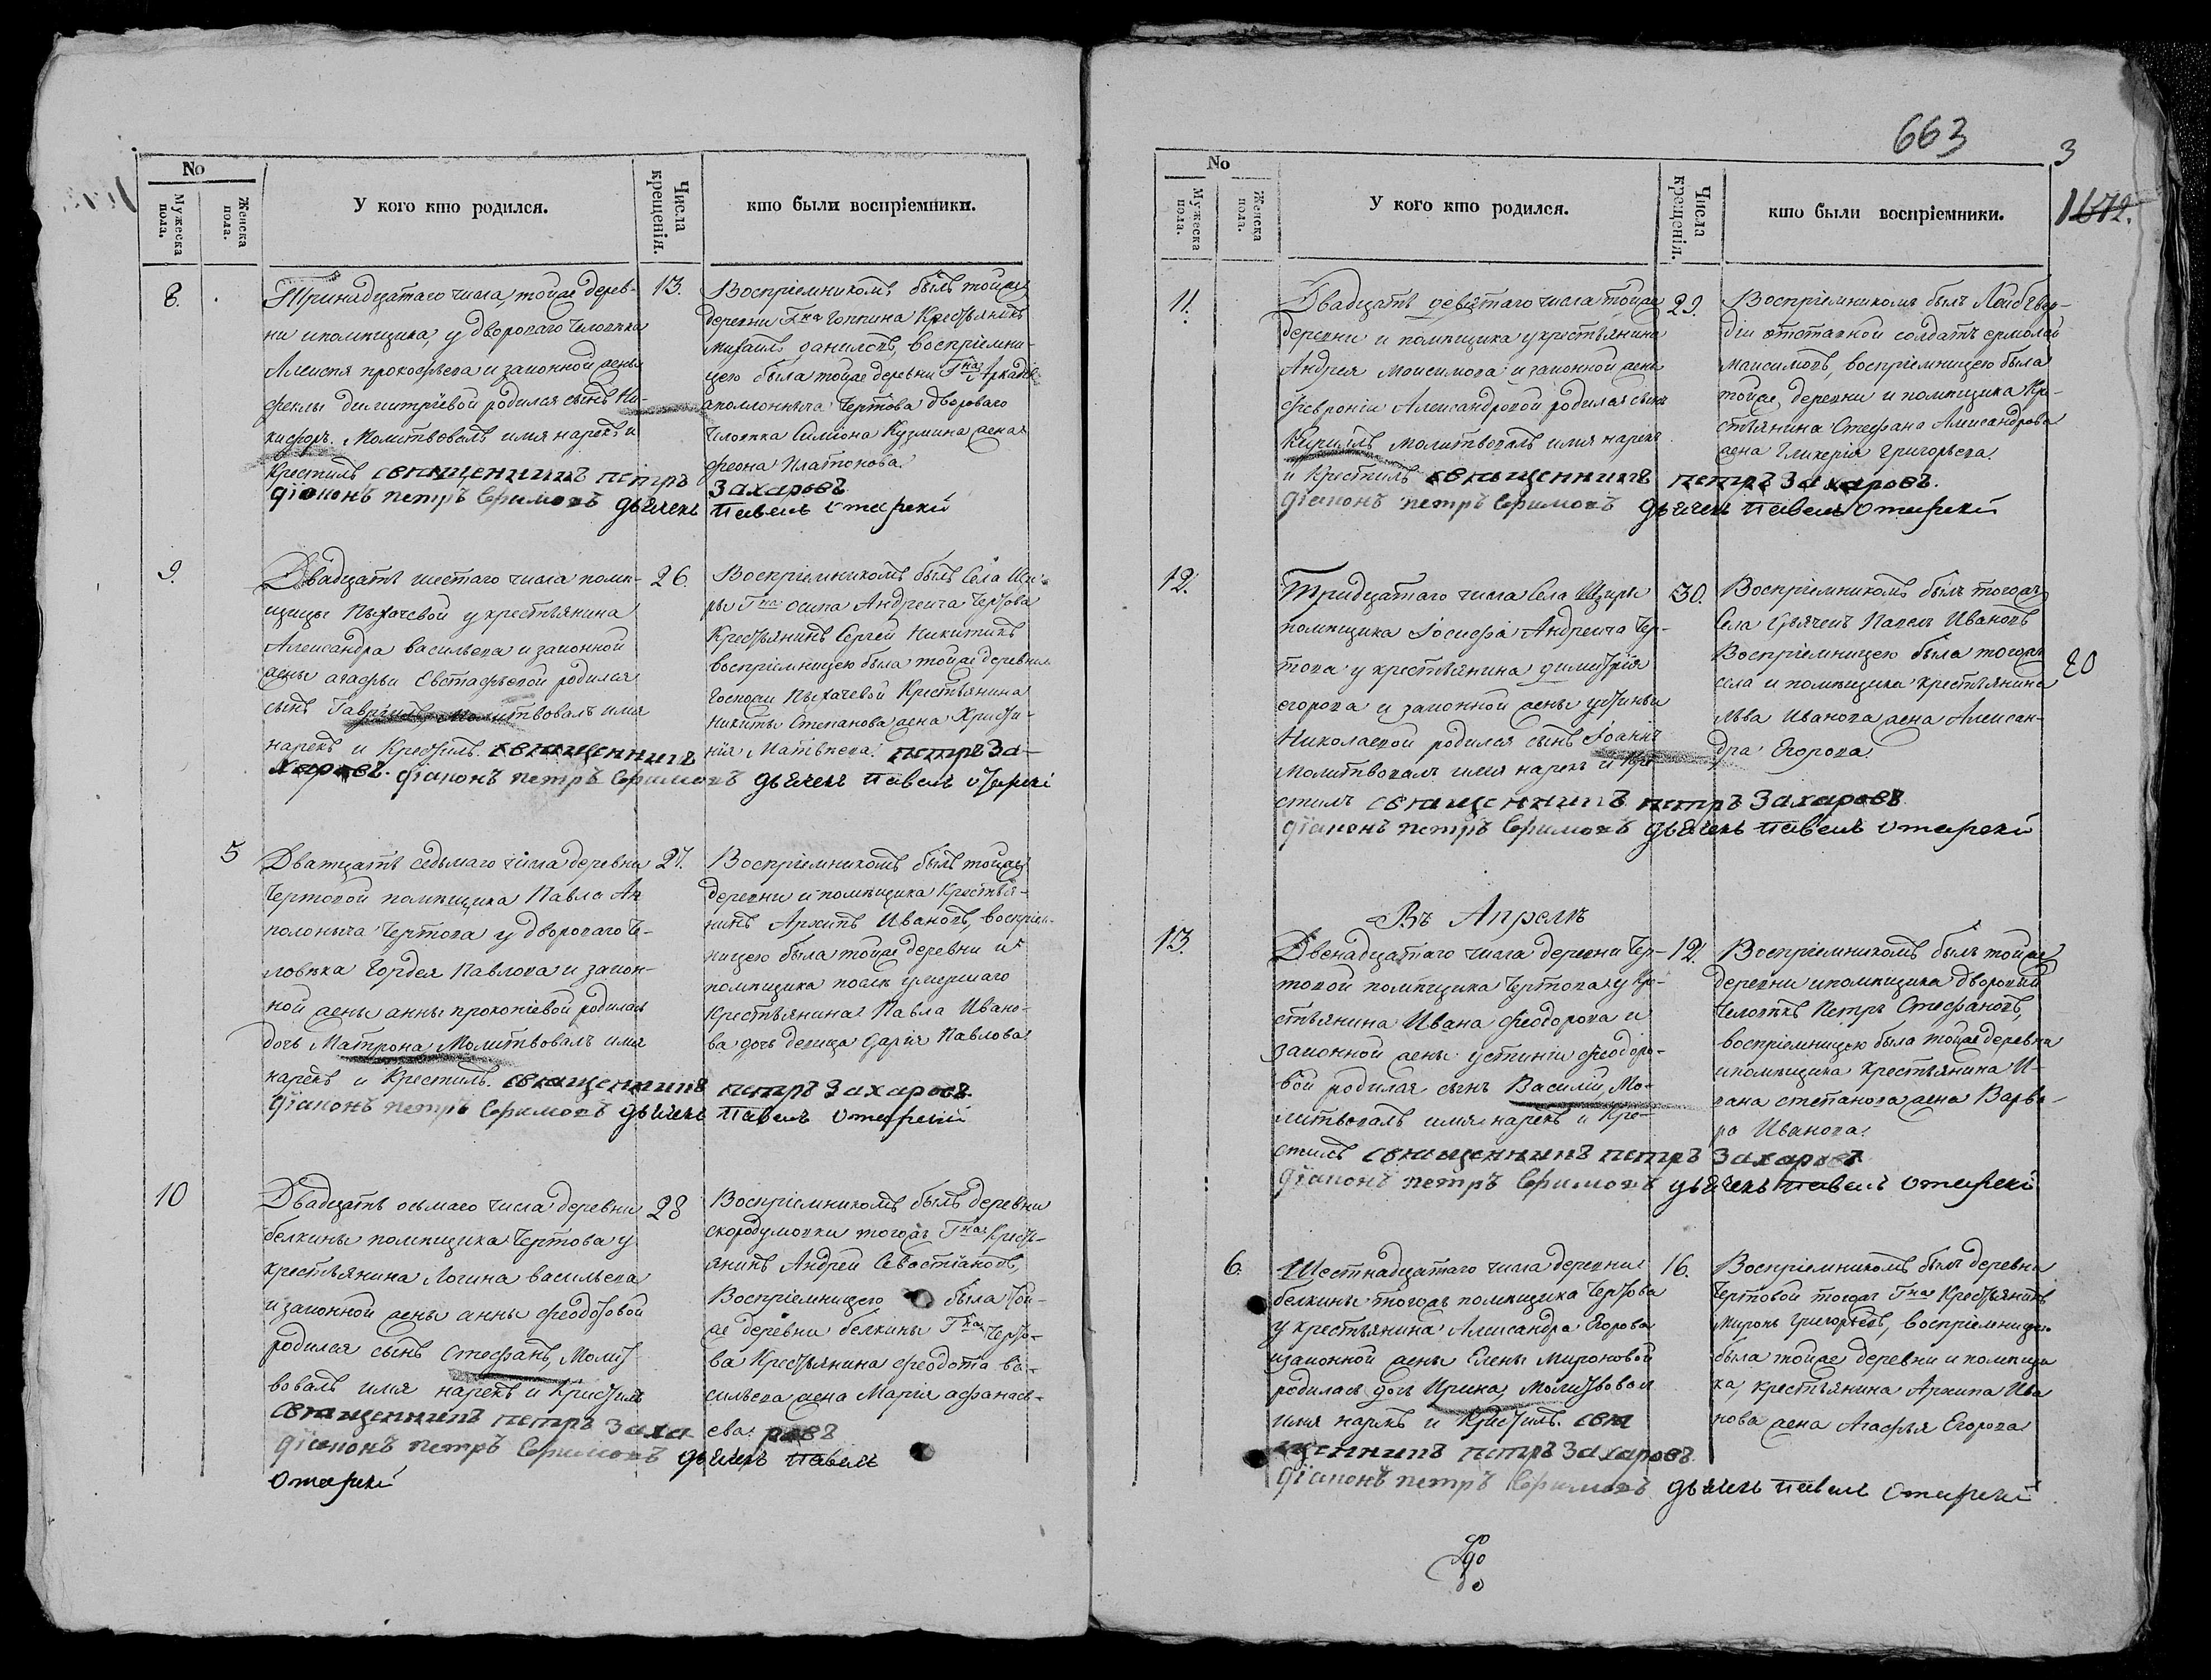 No
Мужеска пола.
Женска пола.
У кого кто родился.
Числа крещенія.
кто были воспріемники.
8.
Тринадцатаго числа тойже дерев-
ни и помѣщика, у двороваго человѣка
Алексѣя Прокофьева и законной жены
Феклы Димитріевой родился сынъ Ни-
кифоръ. Молитвовалъ имя нарекъ и
крестилъ священникъ петръ
діаконъ петръ Ефимовъ дьячекъ
13.
Воспріемникомъ былъ тойже
деревни Гна крестьянинъ
Михаилъ Даниловъ, воспріемни-
цею была тойже деревни Гна Аркадія
Аполлоныча Чертова двороваго
человѣка Симіона Кузмина жена
Феона Платонова.
Захаровъ
павелъ
9.
Двадцать шестаго числа помѣ-
щицы Пыхачевой у крестьянина
Александра Васильева и законной
жены Агафьи Евстафьевой родился
сынъ Гавріилъ, Молитвовалъ имя
нарекъ и крестилъ. священникъ
Захаровъ. діаконъ петръ Ефимовъ дьячекъ павелъ
26.
Воспріемникомъ былъ Села Щи-
ры Гна Осипа Андреича Чертова
крестьянинъ Сергей Никитинъ
воспріемницею была тойже деревни
Госпожи Пыхачевой крестьянина
Никиты Степанова жена Христи-
нія Матвѣева. петръ За-
5
Дватцать седьмаго числа деревни
Чертовой помѣщика Павла Ап
полоныча Чертова у двороваго че-
ловѣка Гордея Павлова и закон-
ной жены анны прокопіевой родилась
дочь Матрона, Молитвовалъ имя
нарекъ и крестилъ. священникъ
діаконъ петръ Ефимовъ дьячекъ
27.
Воспріемникомъ былъ тойже
деревни и помѣщика крестья-
нинъ Архипъ Ивановъ, воспріем-
ницею была тойже деревни и
помѣщика послѣ умершаго
крестьянина Павла Ивано-
ва дочь девица Дарія Павлова.
петръ Захаровъ.
павелъ
10
Двадцать осьмаго числа деревни
белкины помѣщика Чертова у
крестьянина Логина васильева
и законной жены анны Феодотовой
родился сынъ Стефанъ, Молит-
вовалъ имя нарекъ и крестилъ
священникъ петръ Заха
діаконъ петръ Ефимовъ дьячекъ павелъ
28
Воспріемникомъ былъ деревни
скородумовки тогожъ Гна кресть-
янинъ Андрей Севостіановъ,
Воспріемницею была той-
же деревни белкины Гна Черто-
ва крестьянина Феодота ва-
сильева жена Марія афанась-
ева. ровъ
663
3
1672.
No
Мужеска пола.
Женска пола.
У кого кто родился.
Числа крещенія.
кто были воспріемники.
11.
Двадцать девятаго числа тойже
деревни и помѣщика у крестьянина
Андрея Максимова и законной жены
Февроніи Александровой родился сынъ
Кириллъ молитвовалъ имя нарекъ
и крестилъ священникъ
діаконъ петръ Ефимовъ
29.
Воспріемникомъ былъ Лейбъ гвар-
діи отставной солдатъ ермолай
максимовъ, воспріемницею была
тойже деревни и помѣщика Кре-
стьянина Стефана Александрова
жена Гликерія Григорьева.
петръ Захаровъ.
дьячекъ павелъ
12.
Тридцатаго числа Села Щиры
помѣщика Іосифа Андреича Чер-
това у крестьянина димитрія
егорова и законной жены устиньи
Николаевой родился сынъ Іоаннъ
Молитвовалъ имя нарекъ и кре-
стилъ священникъ петръ Захаровъ
діаконъ петръ Ефимовъ дьячекъ павелъ
30.
Воспріемникомъ былъ тогожъ
Села дьячекъ Павелъ Ивановъ
Воспріемницею была тогожъ
села и помѣщика крестьянина
Льва Иванова жена Алексан-
дра Егорова.
20
Въ Апрелѣ
13.
Двенадцатаго числа деревни Чер-
товой помѣщика Чертова у кре-
стьянина Ивана Феодорова и
законной жены устиніи Феодоро-
вой родился сынъ Василій, Мо-
литвовалъ имя нарекъ и кре-
стилъ священникъ петръ
діаконъ петръ Ефимовъ
12.
Воспріемникомъ былъ тойже
деревни и помѣщика дворовый
человѣкъ Петръ Стефановъ,
воспріемницею была тойже деревни
и помѣщика крестьянина И-
вана степанова жена Варва-
ра Иванова.
Захаровъ
дьячекъ павелъ
6.
Шестнадцатаго числа деревни
белкины тогожъ помѣщика Чертова
у крестьянина Александра Егорова
и законной жены Елены Мироновой
родилась дочь Ирина, Молитвовал
имя нарекъ и крестилъ. свя
щенникъ петръ Захаровъ.
діаконъ петръ Ефимовъ дьячекъ павелъ
16.
Воспріемникомъ былъ деревни
Чертовой тогожъ Гна крестьянинъ
Миронъ Григорьевъ, воспріемницею
была тойже деревни и помѣщи
ка, крестьянина Архипа Ива
нова жена Агафья Егорова